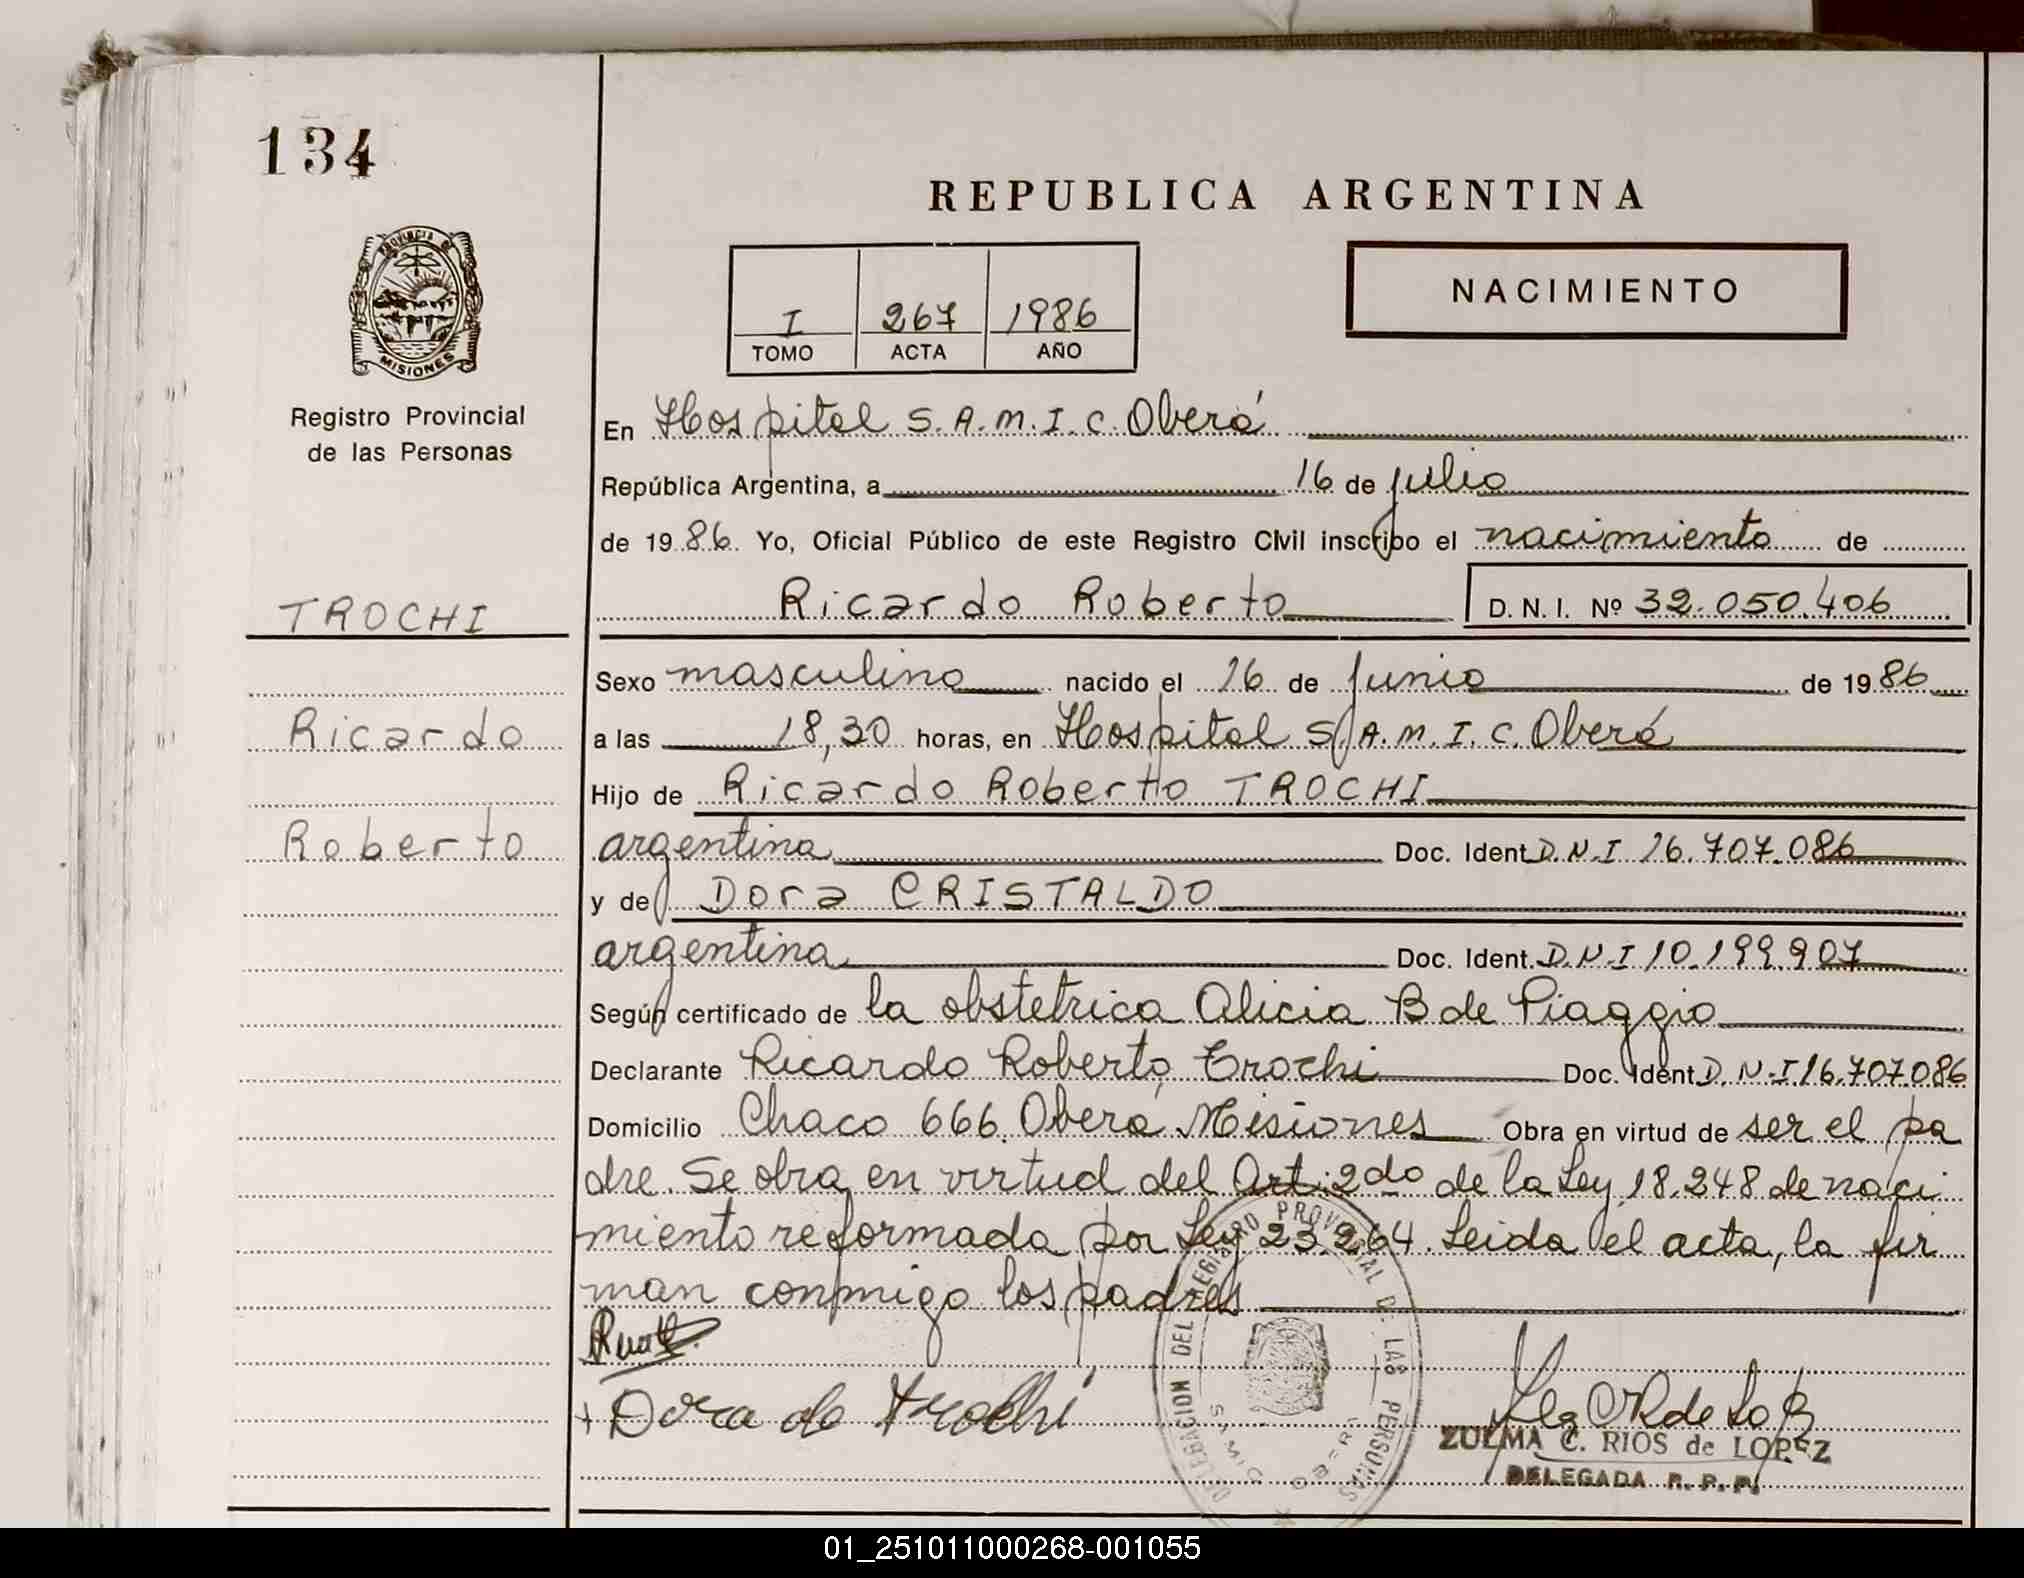 134
REPUBLICA ARGENTINA
PROVINCIA DE
MISIONES
Registro Provincial
de las Personas
I 267 1986
TOMO ACTA AÑO
NACIMIENTO
En Hospital S.A.M.I.C. Oberá
República Argentina, a 16 de julio
de 1986. Yo, Oficial Público de este Registro Civil inscribo el nacimiento de
Ricardo Roberto D.N.I. Nº 32.050.406
TROCHI
Ricardo
Roberto
Sexo masculino nacido el 16 de junio de 1986
a las 18,30 horas, en Hospital S.A.M.I.C. Oberá
Hijo de Ricardo Roberto TROCHI
argentina Doc. Ident. D.N.I 16.707.086
y de Dora CRISTALDO
argentina Doc. Ident. D.N.I 10.199.907
Según certificado de la obstetrica Alicia B de Piaggio
Declarante Ricardo Roberto Trochi Doc. Ident. D.N.I 16.707.086
Domicilio Chaco 666 Oberá Misiones Obra en virtud de ser el pa
dre. Se obra en virtud del Art. 2do de la Ley 18.248 de naci
miento reformada por Ley 23.264. Leida el acta, la fir
man conmigo los padres
Dora de Trochi
DELEGACION DEL REGISTRO PROVINCIAL DE LAS PERSONAS
ZULMA C. RIOS de LOPEZ
DELEGADA R.P.P.
01_251011000268-001055